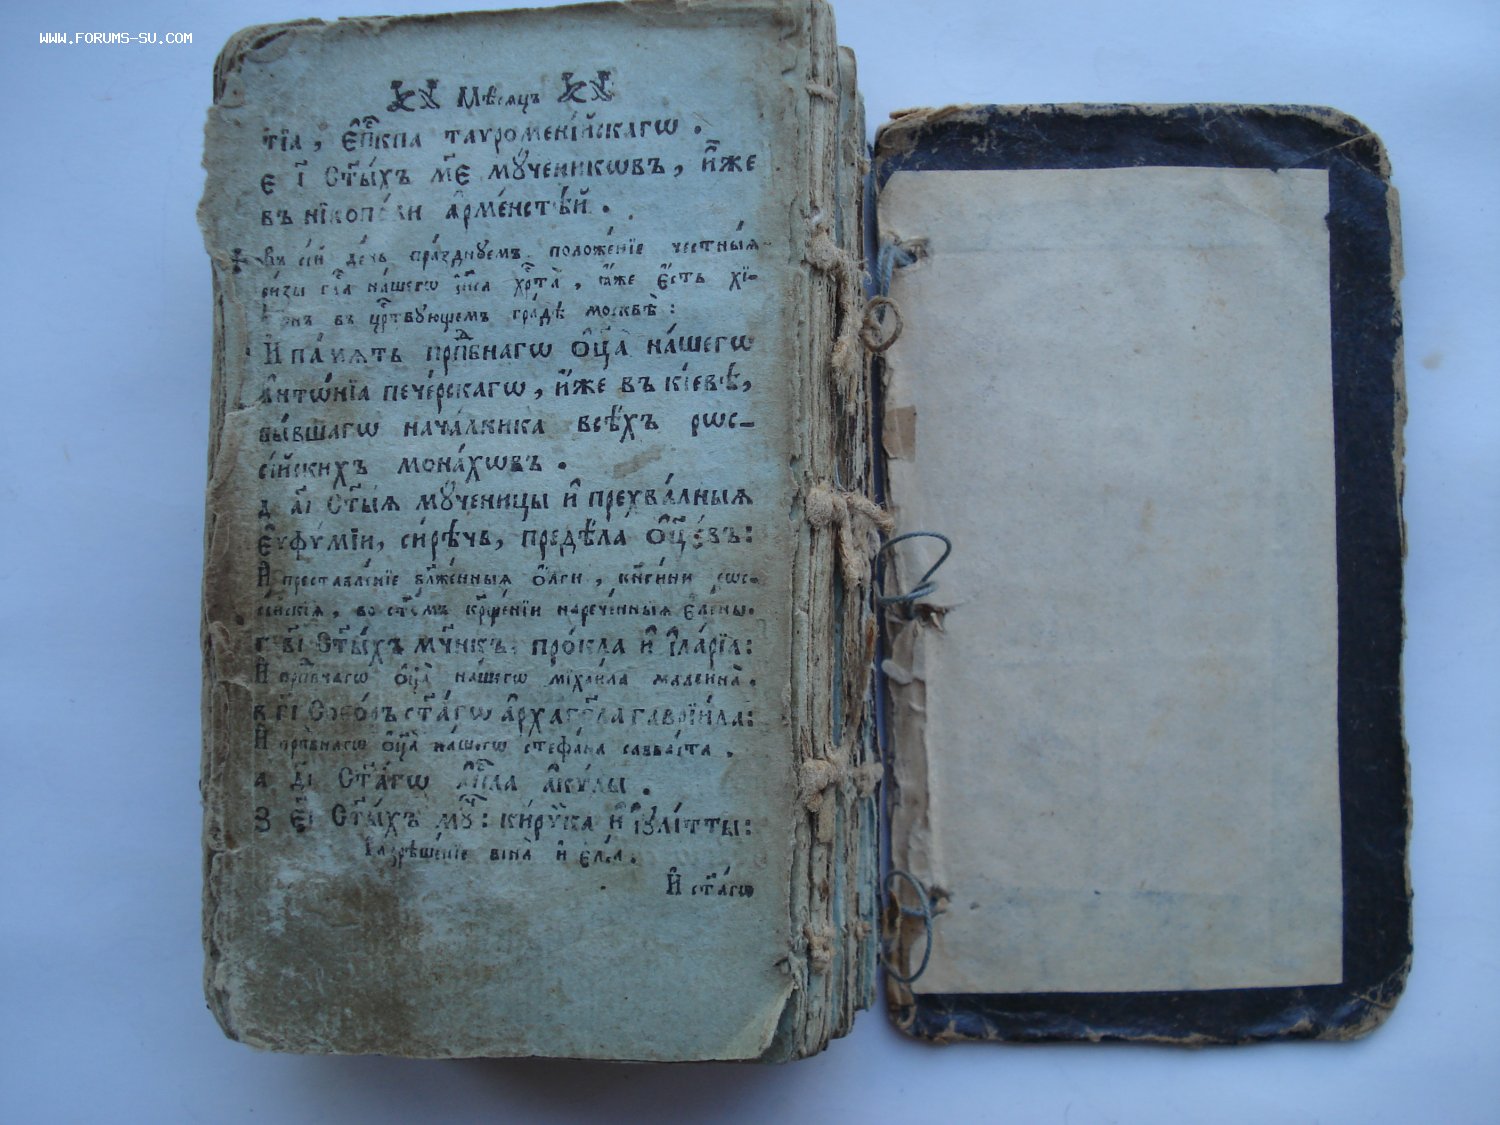 WWW.FORUMS-SU.COM
Мѣсяцъ
тїа, є҆пⷭ҇кпа тауромені́йскагѡ .
є і҃ ст҃ы́хъ м҃є мꙋ́ченикѡвъ, и҆̀же
въ нїкопо́ли а҆рме́нстѣй .
Въ сі́й де́нь пра́зднꙋемъ положе́нїе честны́ѧ
ри́зы гдⷭ҇а на́шегѡ і҆и҃са хрⷭ҇та̀, ꙗ҆́же є҆́сть хї-
въ црⷭ҇твꙋющемъ гра́дѣ москвѣ̀ :
И҆ па́мѧть прпⷣбнагѡ ѻ҆ц҃а̀ на́шегѡ
а҆нтѡ́нїа пече́рскагѡ, и҆́же въ кі́евѣ,
бы́вшагѡ нача́лника всѣ́хъ рѡс-
сі́йскихъ мона́хѡвъ .
д а҃і ст҃ы́ѧ мꙋ́ченицы и҆ прехва́лныѧ
є҆ѵфѵ́мїи, си́рѣчь, предѣ́ла ѻ҆ц҃є́въ:
И҆ преставле́нїе бл҃же́нныѧ ѻ҆́лги, кнѧги́ни рѡс-
сі́йскїѧ, во ст҃о́мъ кр҃ще́нїи нарече́нныѧ є҆ле́ны.
г в҃і ст҃ы́хъ мч҃нкъ про́кла и҆ і҆ла́рїа:
И҆ прпⷣбнагѡ ѻ҆ц҃а̀ на́шегѡ мїхаи́ла малеина̀ .
в г҃і Собо́ръ ст҃а́гѡ а҆рха́гг҃ла гаврїи́ла:
И҆ прпⷣбнагѡ ѻ҆ц҃а̀ на́шегѡ стефа́на савваі́та .
а д҃і ст҃а́гѡ а҆пⷭ҇ла а҆кѵ́лы .
З є҃і ст҃ы́хъ мꙋ҃ч: ки́рѵка и҆ і҆ꙋлі́тты:
Разрѣше́нїе вїна̀ и҆ є҆ле́а .
И҆ ст҃а́гѡ